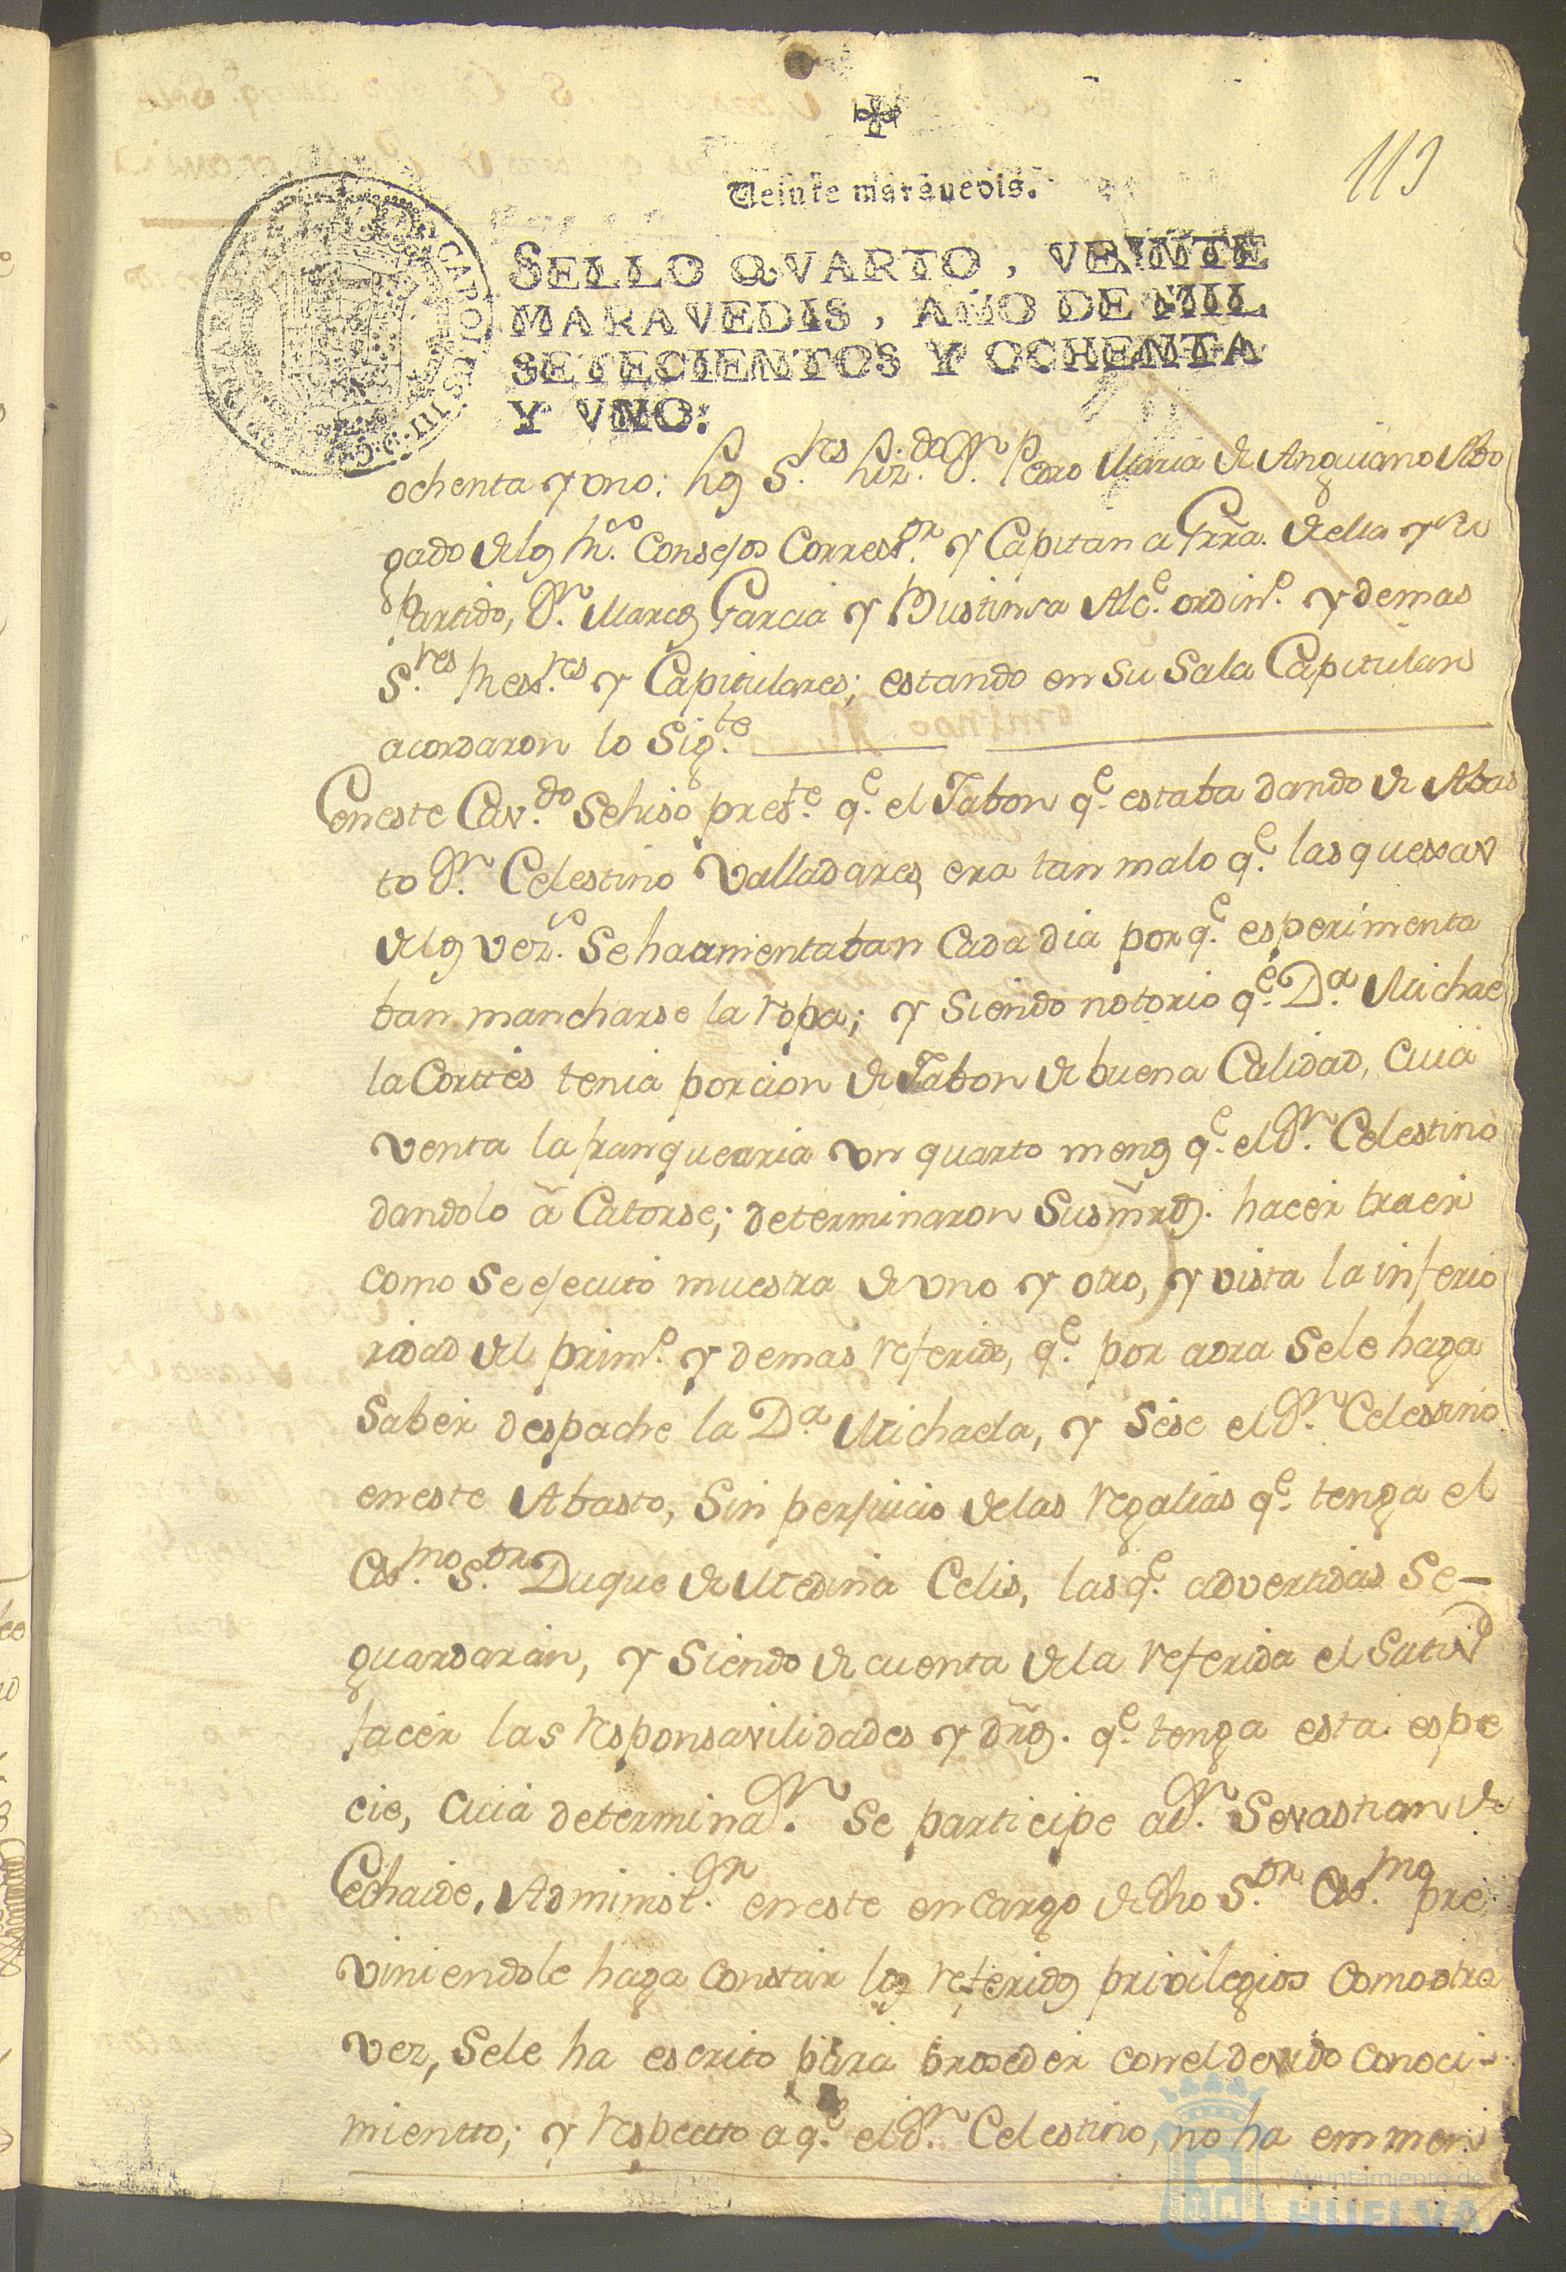 113
Veinte maravedis.
SELLO QVARTO, VEINTE
MARAVEDIS, AÑO DE MIL
SETECIENTOS Y OCHENTA
Y VNO:
CAROLUS III D G
ochenta y uno; los S.res Liz.do D.n Pedro Maria de Anguiano Abo
gado de los R.s Consejos Corres.or y Capitan a Grra. della y su
Partido, D.n Marcos Garcia y Bustinsa Alc.e ordin.o y demas
S.res Rex.res y Capitulares; estando en su Sala Capitular
acordaron lo Sig.te
en este Cav.do Se hiso pres.te q.e el Jabon q.e estaba dando de Abas
to D.n Celestino Valladares, era tan malo q.e las quexas
de los vez.s Se haumentaban Cada dia porq.e esperimenta
ban mancharse la ropa; y Siendo notorio q.e D.a Michae
la Corttes tenia porcion de Jabon de buena Calidad, cuia
venta la franquearia un quarto menos q.e el D.n Celestino
dandolo â Catorse; determinaron Sus mrds. hacer traer
como Se ejecutó muestra de uno y otro, y vista la inferio
ridad del prim.o y demas referido, q.e por aora Sele haga
Saber despache la D.a Michaela, y Sése el D.n Celestino
en este Abasto, Sin perjuicio de las regalias q.e tenga el
Ex.mo S.or Duque de Medina Celis, las q.e advertidas Se-
guardarán, y Siendo de cuenta de la referida el Satis
facer las responsavilidades y drõs. q.e tenga esta espe
cie, cuia determina.n Se participe a D.n Sevastian de
Echaide, Administ.or en este encargo de dho S.or Ex.mo pre
viniendole haga constar los referidos privilegios como otra
vez, Sele ha escrito para proceder con el devido conoci-
mientto; y respectto a q.e el D.n Celestino, no ha enmen
Ayuntamiento de
HUELVA